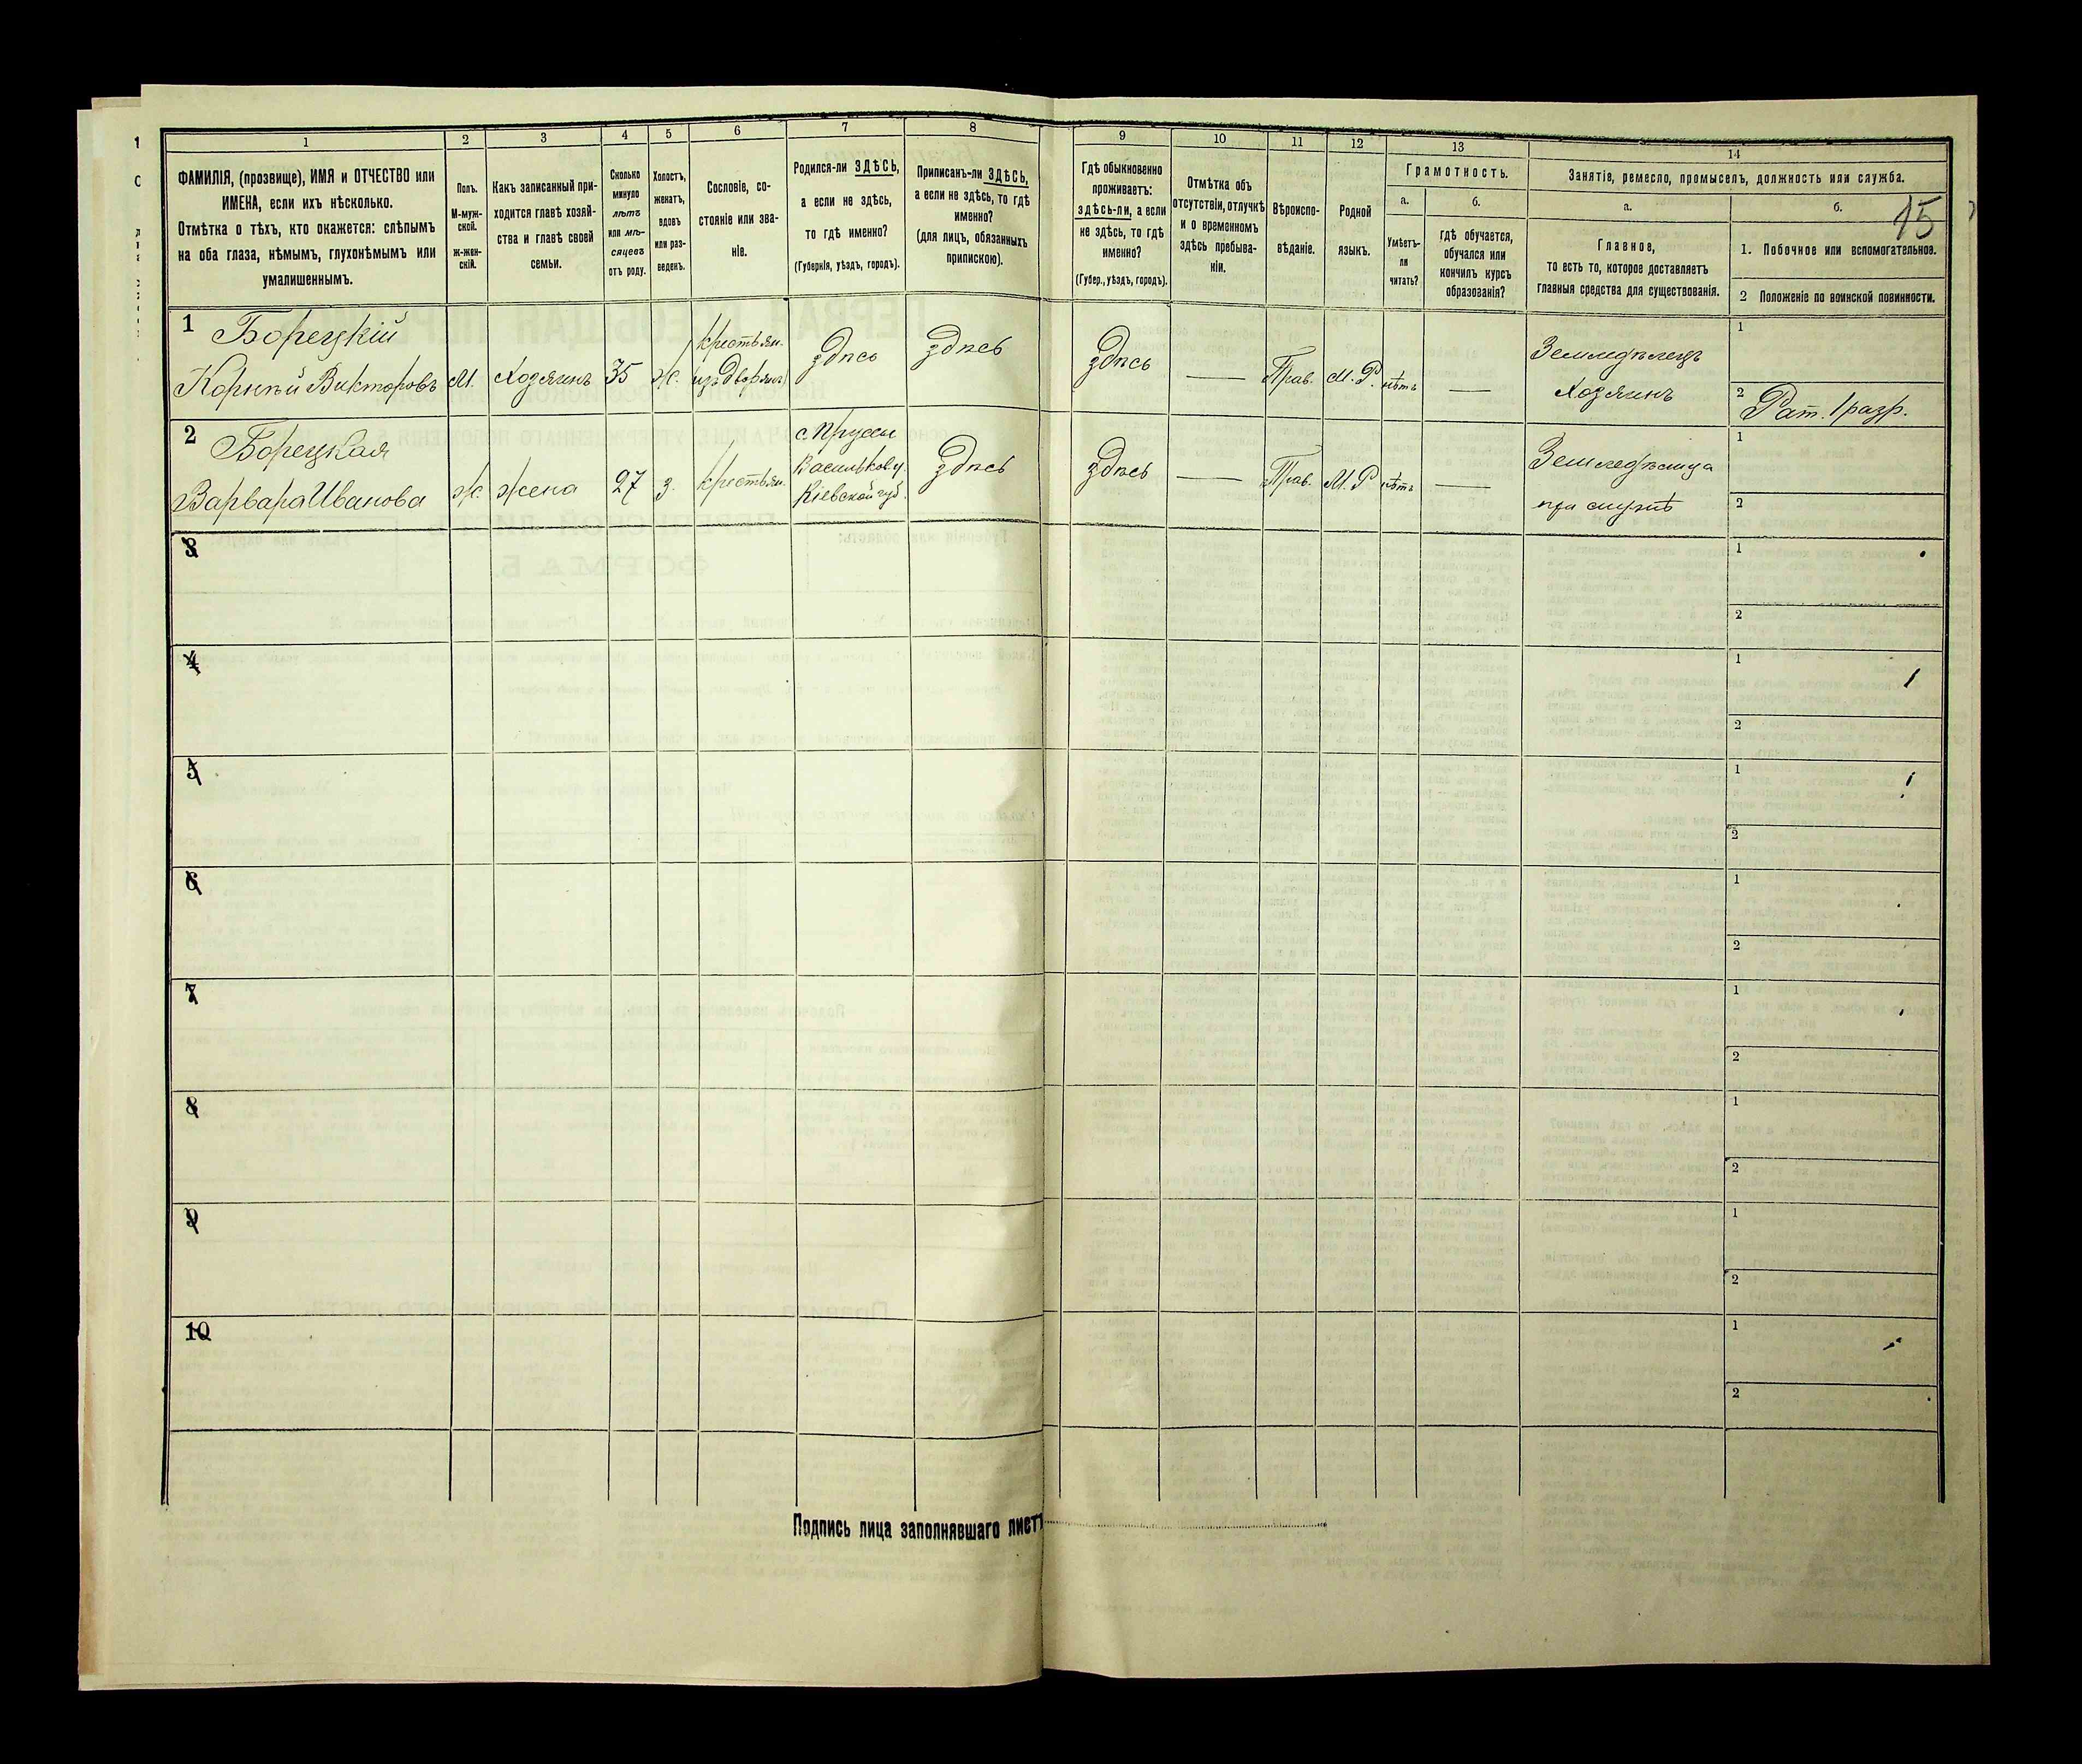 1 2 3 4 5 6 7 8 9 10 11 12 13 14
ФАМИЛІЯ, (прозвище), ИМЯ и ОТЧЕСТВО или
ИМЕНА, если ихъ нѣсколько.
Отмѣтка о тѣхъ, кто окажется: слѣпымъ
на оба глаза, нѣмымъ, глухонѣмымъ или
умалишеннымъ.
Полъ.
М-муж-
ской.
ж-жен-
скій.
Какъ записанный при-
ходится главѣ хозяй-
ства и главѣ своей
семьи.
Сколько
минуло
лѣтъ
или мѣ-
сяцевъ
отъ роду.
Холостъ,
женатъ,
вдовъ
или раз-
веденъ.
Сословіе, со-
стояніе или зва-
ніе.
Родился-ли ЗДѢСЬ,
а если не здѣсь,
то гдѣ именно?
(Губернія, уѣздъ, городъ).
Приписанъ-ли ЗДѢСЬ,
а если не здѣсь, то гдѣ
именно?
(для лицъ, обязанныхъ
припискою).
Гдѣ обыкновенно
проживаетъ:
здѣсь-ли, а если
не здѣсь, то гдѣ
именно?
(Губер., уѣздъ, городъ).
Отмѣтка объ
отсутствіи, отлучкѣ
и о временномъ
здѣсь пребыва-
ніи.
Вѣроиспо-
вѣданіе.
Родной
языкъ.
Грамотность.
а.
Умѣетъ-
ли
читать?
б.
гдѣ обучается,
обучался или
кончилъ курсъ
образованія?
Занятіе, ремесло, промыселъ, должность или служба.
а.
Главное,
то есть то, которое доставляетъ
главныя средства для существованія.
б.
15
1. Побочное или вспомогательное.
2 Положеніе по воинской повинности.
1 Борецкій
Корнѣй Викторовъ М. Хозяинъ 35 ж. крестьян. (изъ дворянъ) здѣсь здѣсь здѣсь — Прав. М.Р. нѣтъ —
Земледѣлецъ
Хозяинъ
1
2 Рат. 1 разр.
2 Борецкая
Варвара Иванова ж. жена 27 з. крестьян.
с. Пруссы
Васильков. у.
Кіевской губ.
здѣсь здѣсь — Прав. М.Р нѣтъ —
Земледѣлица
при мужѣ
1
2
3 1
2
4 1
2
5 1
2
6 1
2
7 1
2
8 1
2
9 1
2
10 1
2
Подпись лица заполнявшаго листъ